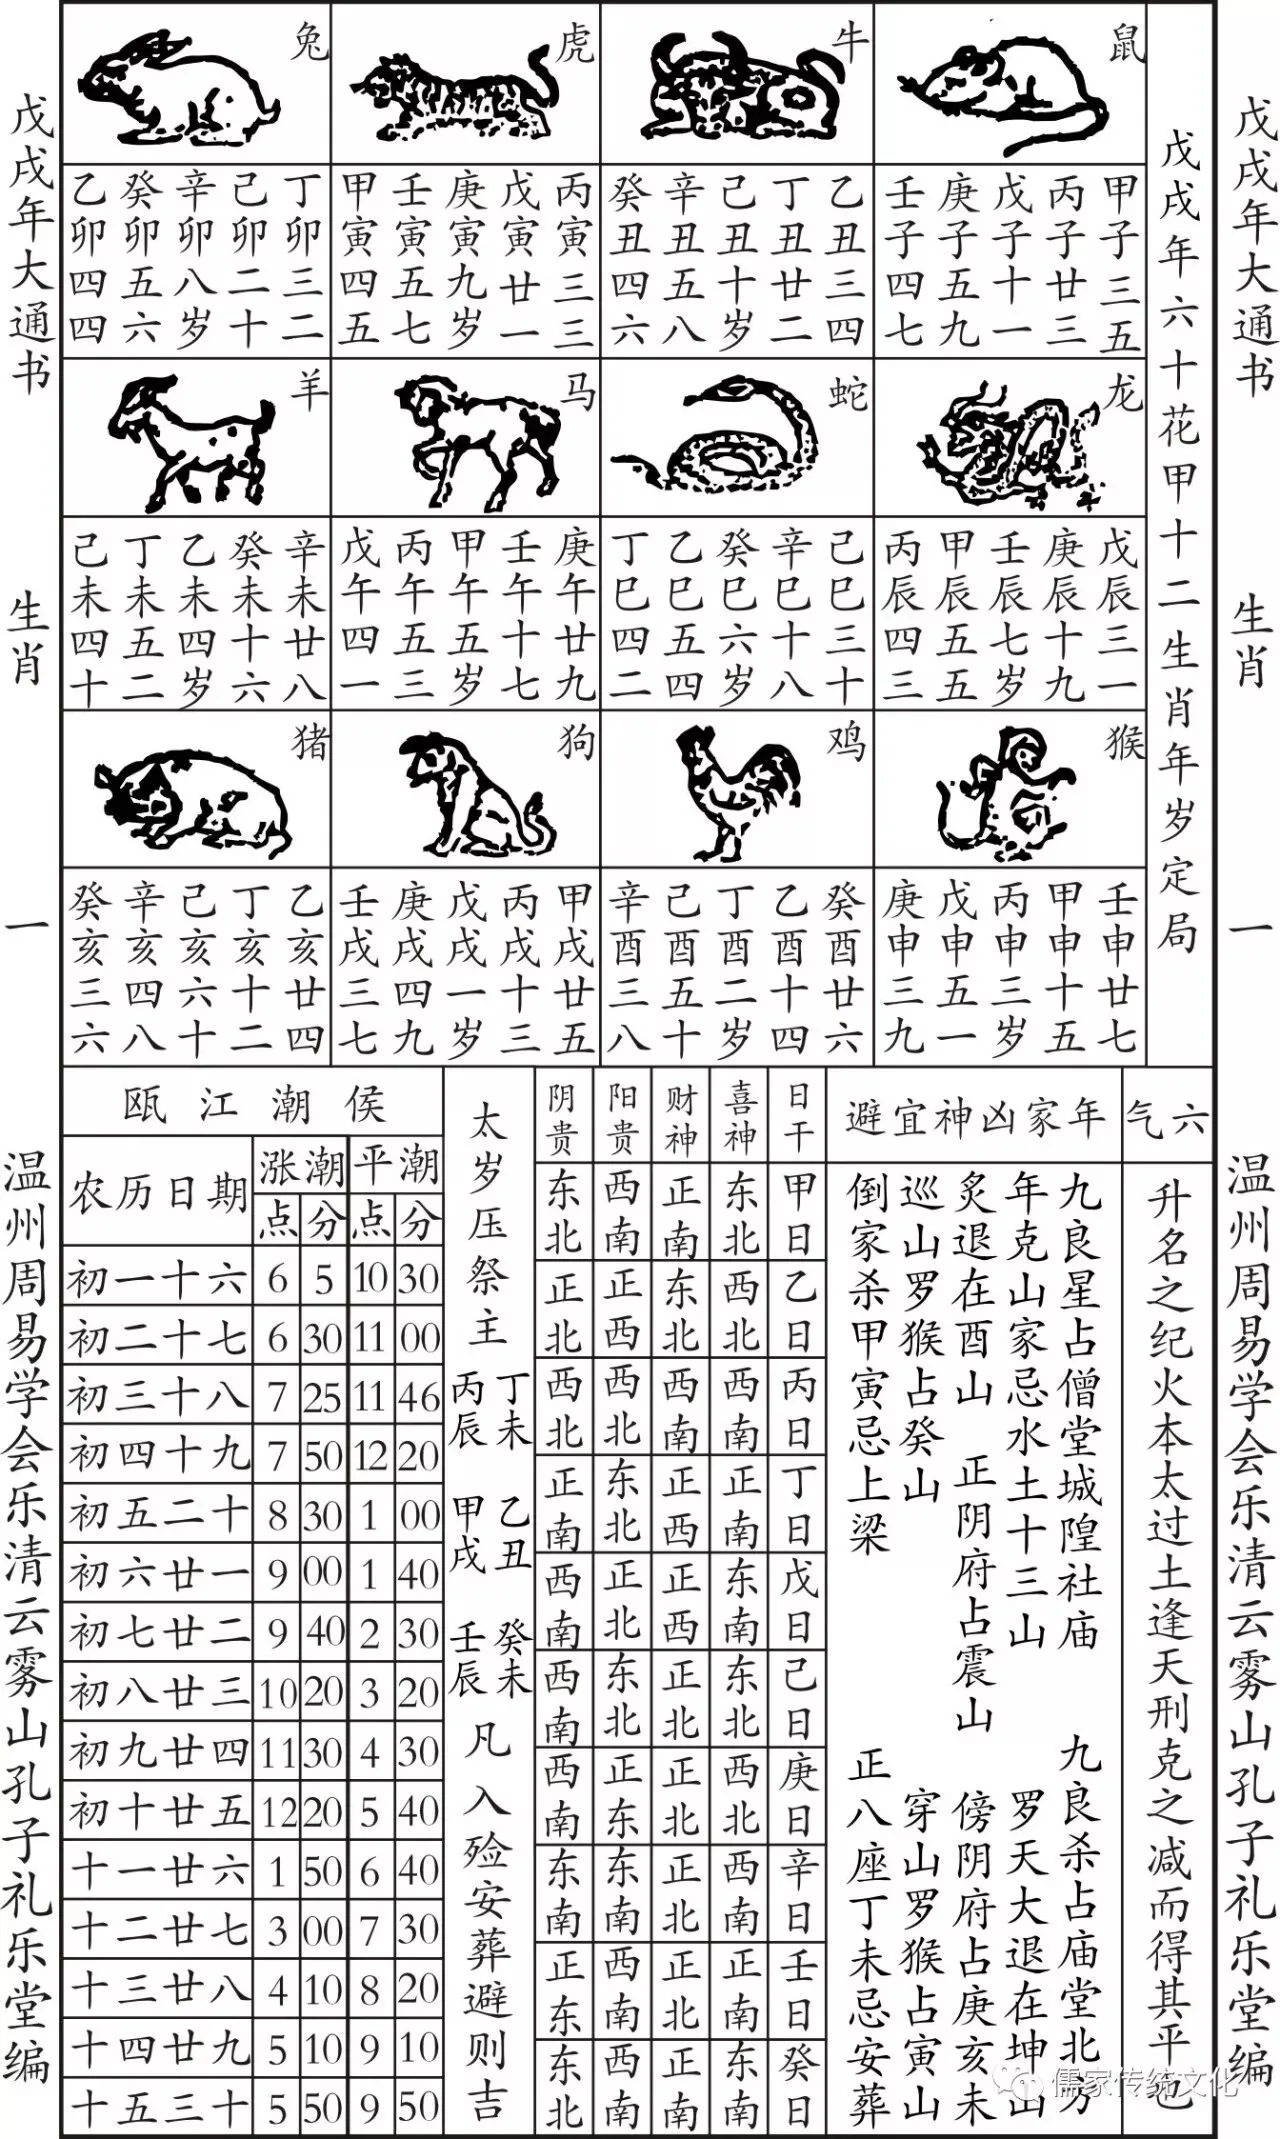 戊戌年大通书
生肖
一
温州周易学会乐清云雾山孔子礼乐堂编
戊戌年六十花甲十二生肖年岁定局
鼠
甲子三五
丙子廿三
戊子十一
庚子五九
壬子四七
牛
乙丑三四
丁丑廿二
己丑十岁
辛丑五八
癸丑四六
虎
丙寅三三
戊寅廿一
庚寅九岁
壬寅五七
甲寅四五
兔
丁卯三二
己卯二十
辛卯八岁
癸卯五六
乙卯四四
龙
戊辰三一
庚辰十九
壬辰七岁
甲辰五五
丙辰四三
蛇
己巳三十
辛巳十八
癸巳六岁
乙巳五四
丁巳四二
马
庚午廿九
壬午十七
甲午五岁
丙午五三
戊午四一
羊
辛未廿八
癸未十六
乙未四岁
丁未五二
己未四十
猴
壬申廿七
甲申十五
丙申三岁
戊申五一
庚申三九
鸡
癸酉廿六
乙酉十四
丁酉二岁
己酉五十
辛酉三八
狗
甲戌廿五
丙戌十三
戊戌一岁
庚戌四九
壬戌三七
猪
乙亥廿四
丁亥十二
己亥六十
辛亥四八
癸亥三六
气六
升名之纪火本太过土逢天刑克之减而得其平也
避宜神凶家年
九良星占僧堂城隍社庙 九良杀占庙堂北方
年克山家忌水土十三山 罗天大退在坤山
炙退在酉山 正阴府占震山 傍阴府占庚亥未
巡山罗猴占癸山 穿山罗猴占寅山
倒家杀甲寅忌上梁 正八座丁未忌安葬
阴贵 阳贵 财神 喜神 日干
东北 西南 正南 东北 甲日
正北 正西 东北 西北 乙日
西北 西北 西南 西南 丙日
正南 东北 正西 正南 丁日
西南 正北 正西 东南 戊日
西南 东北 正北 东北 己日
西南 正东 正北 西北 庚日
东南 东南 正北 西南 辛日
正东 西南 正北 正南 壬日
东北 西南 正南 东南 癸日
太岁压祭主
丁未 丙辰
乙丑 甲戌
癸未 壬辰
凡入殓安葬避则吉
瓯江潮侯
农历日期 涨潮 平潮
点 分 点 分
初一十六 6 5 10 30
初二十七 6 30 11 00
初三十八 7 25 11 46
初四十九 7 50 12 20
初五二十 8 30 1 00
初六廿一 9 00 1 40
初七廿二 9 40 2 30
初八廿三 10 20 3 20
初九廿四 11 30 4 30
初十廿五 12 20 5 40
十一廿六 1 50 6 40
十二廿七 3 00 7 30
十三廿八 4 10 8 20
十四廿九 5 10 9 10
十五三十 5 50 9 50
戊戌年大通书
生肖
一
温州周易学会乐清云雾山孔子礼乐堂编
儒家传统文化